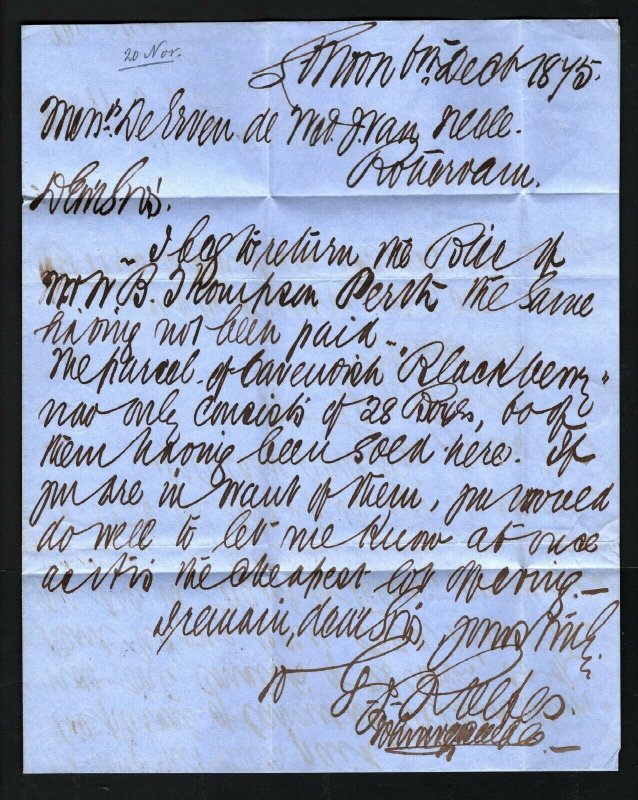 20 Nov.
London 6th Decb 1875.
Messrs De Erven de Wed. J. van Nelle.
Rotterdam.
Dear Sirs.
I beg to return the Bill of
Mr W B. Thompson Perth the same
having not been paid.
The parcel of Cavendish "Blackberry"
now only consists of 28 Boxes, 60 of
them having been sold here. If
you are in want of them, you would
do well to let me know at once
as it is the cheapest lot offering. —
I remain, dear Sirs, yours truly